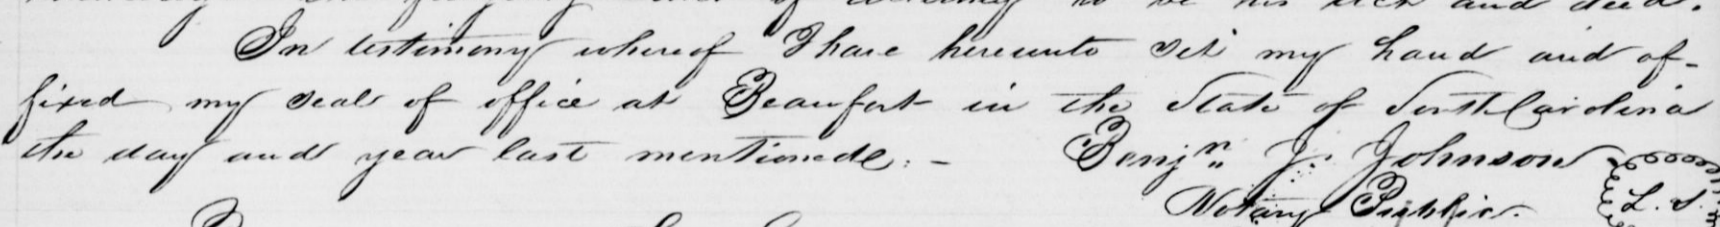 to be his act and deed.
In testimony whereof I have hereunto set my hand and af-
fixed my seal of office at Beaufort in the State of South Carolina
the day and year last mentioned. - Benjn. J. Johnson
Notary Public. L. S.